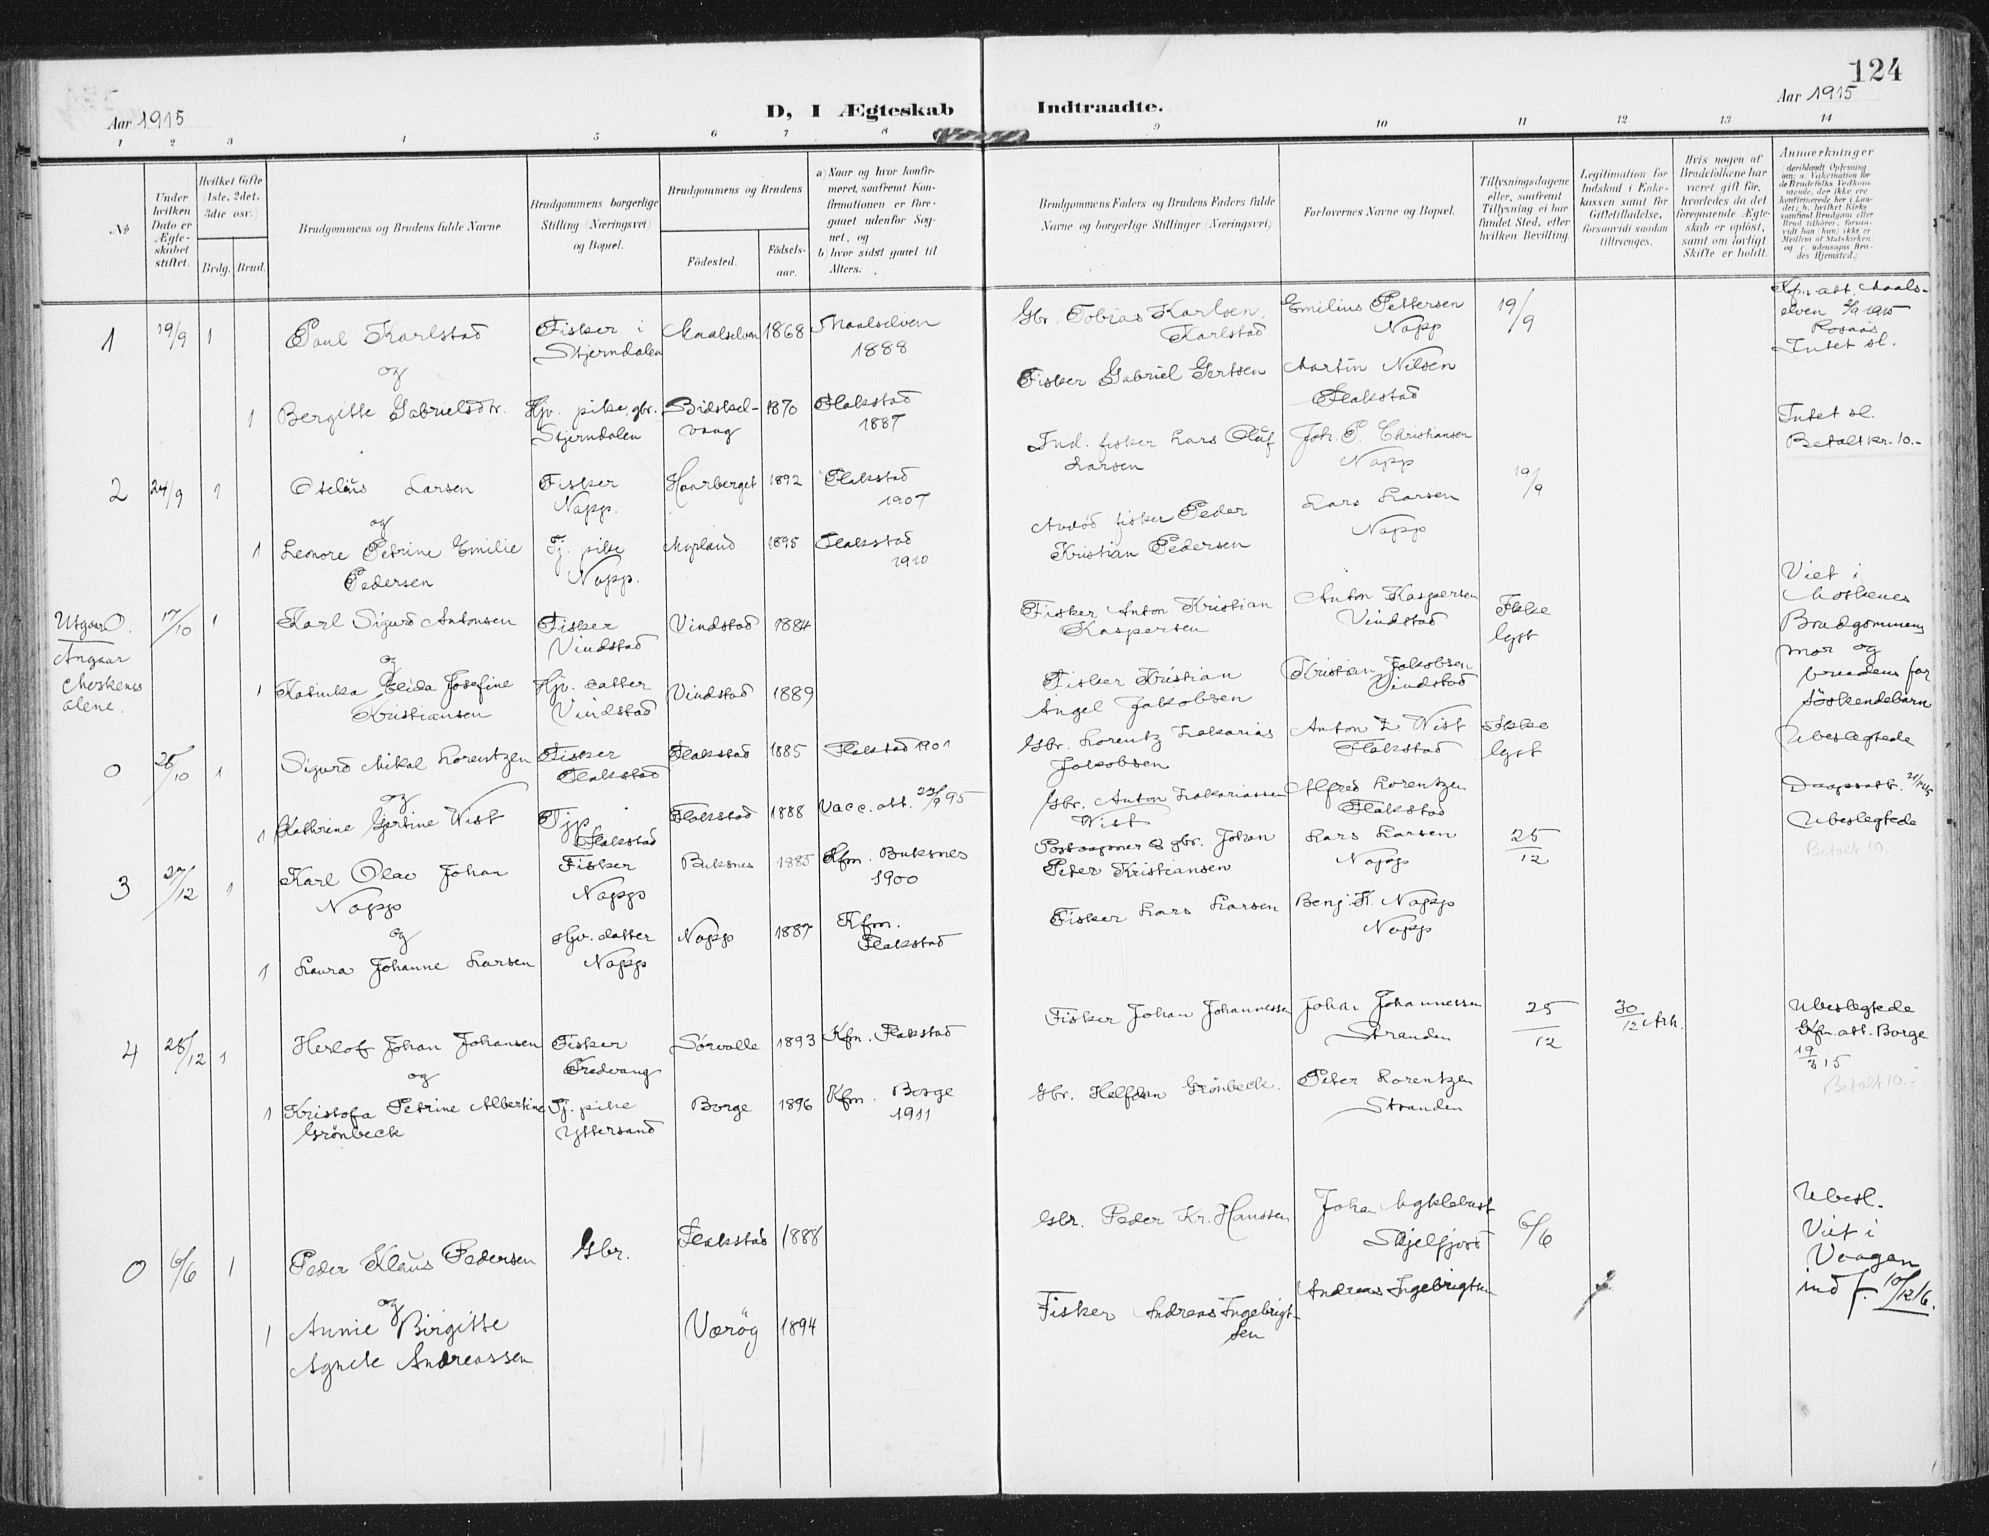 124
Aar 1915
D, I Ægteskab Indtraadte.
Aar 1915
1 2 3 4 5 6 7 8 9 10 11 12 13 14
No
Under hvilken Dato er Ægteskabet stiftet.
Hvilket Gifte (1ste, 2det, 3die osv.)
Brdg. Brud.
Brudgommens og Brudens fulde Navne
Brudgommens borgerlige Stilling (Næringsvei) og Bopæl.
Brudgommens og Brudens
Fødested.
Fødselsaar.
a) Naar og hvor konfirmeret, saafremt Konfirmationen er foregaaet udenfor Sognet, og
b) hvor sidst gaaet til Alters.
Brudgommens Faders og Brudens Faders fulde Navne og borgerlige Stillinger (Næringsvei)
Forlovernes Navne og Bopæl.
Tillysningsdagene eller, saafremt Tillysning ei har fundet Sted, efter hvilken Bevilling.
Legitimation for Indskud i Enkekassen samt for Giftetilladelse, forsaavidt saadan tiltrænges.
Hvis nogen af Brudefolkene har været gift før, hvorledes da det foregaaende Ægteskab er opløst, samt om lovligt Skifte er holdt.
Anmærkninger
1 19/9 1 Paul Karlstad Fisker i Stjerndalen Maalselven 1868 Maalselven 1888
Gbr. Tobias Karlsen, Karlstad Emilius Pettersen Napp 19/9
Kfm. att. Maalselven 2/9 1915 Rosaas Intet sl.
og
1 Bergitte Gabrielsdtr. Hjv. pike, gbr. Stjerndalen 1870 Flakstad 1887
Fisker Gabriel Gertsen Martin Nilsen Flakstad
Intet sl.
Betalt kr. 10.-
2 24/9 1 Oselius Larsen Fisker Napp. Haarberget 1892 Flakstad 1907
Ind. fisker Lars Oluf Larsen Joh. P. Christiansen Napp 19/9
og
1 Leonore Petrine Emilie Pedersen Tj. pike Napp. Myrland 1895 Flakstad 1910
Avdød fisker Peder Kristian Pedersen Lars Larsen Napp
Utgaar.
Angaar Moskenes alene.
17/10 1 Karl Sigurd Antonsen Fisker Vindstad Vindstad 1884
Fisker Anton Kristian Kaspersen Anton Kaspersen Vindstad Ikke lyst
Viet i Moskenes
Brudgommens mor og brudens far söskendebarn
og
1 Katinka Elida Josefine Kristiansen Hjv. datter Vindstad Vindstad 1889
Fisker Kristian Angel Jakobsen Kristian Jakobsen Vindstad
0 28/10 1 Sigurd Mikal Lorentzen Fisker Flakstad Flakstad 1885 Flakstad 1901
Gbr. Lorentz Zakarias Jakobsen Anton Z Wist Flakstad Ikke lyst
Ubeslegtede
og
1 Kathrine Gjertine Wist Tjp. Flakstad Flakstad 1888 Vacc. att. 95
Gbr. Anton Zakariassen Wist Alfred Lorentzen Flakstad
Daapsatt.
Ubeslegtede
3 27/12 1 Karl Olav Johan Napp Fisker Napp Buksnes 1885 Kfm. Buksnes 1900
Postaapner & gbr. Johan Peter Kristiansen Lars Larsen Napp 25/12
Betalt 10.-
og
1 Laura Johanne Larsen Hjv. datter Napp Napp 1887 Kfm. Flakstad
Fisker Lars Larsen Benj. K. Napp Napp
4 28/12 1 Herlof Johan Johansen Fisker Fredvang Sørvalle 1893 Kfm. Flakstad
Fisker Johan Johannessen Johan Johannessen Stranden 25/12 30/12 Arh.
Ubeslegtede
Kfm. att. Borge 19/ 15
Betalt 10.-
og
1 Kristofa Petrine Albertine Grönbeck Tj. pike Yttersand Borge 1896 Kfm. Borge 1911
Gbr. Halfdan Grönbeck. Peter Lorentzen Stranden
0 6/6 1 Peder Klaus Pedersen Gbr. Flakstad 1888
Gbr. Peder Kr. Hanssen Johan Myklebust Skjelfjord 6/6
Ubesl.
Viet i Vaagan
ind f. 10/12 16.
og
1 Annie Birgitte Agnete Andreassen Værøy 1894
Fisker Andreas Ingebrigtsen Andreas Ingebrigtsen